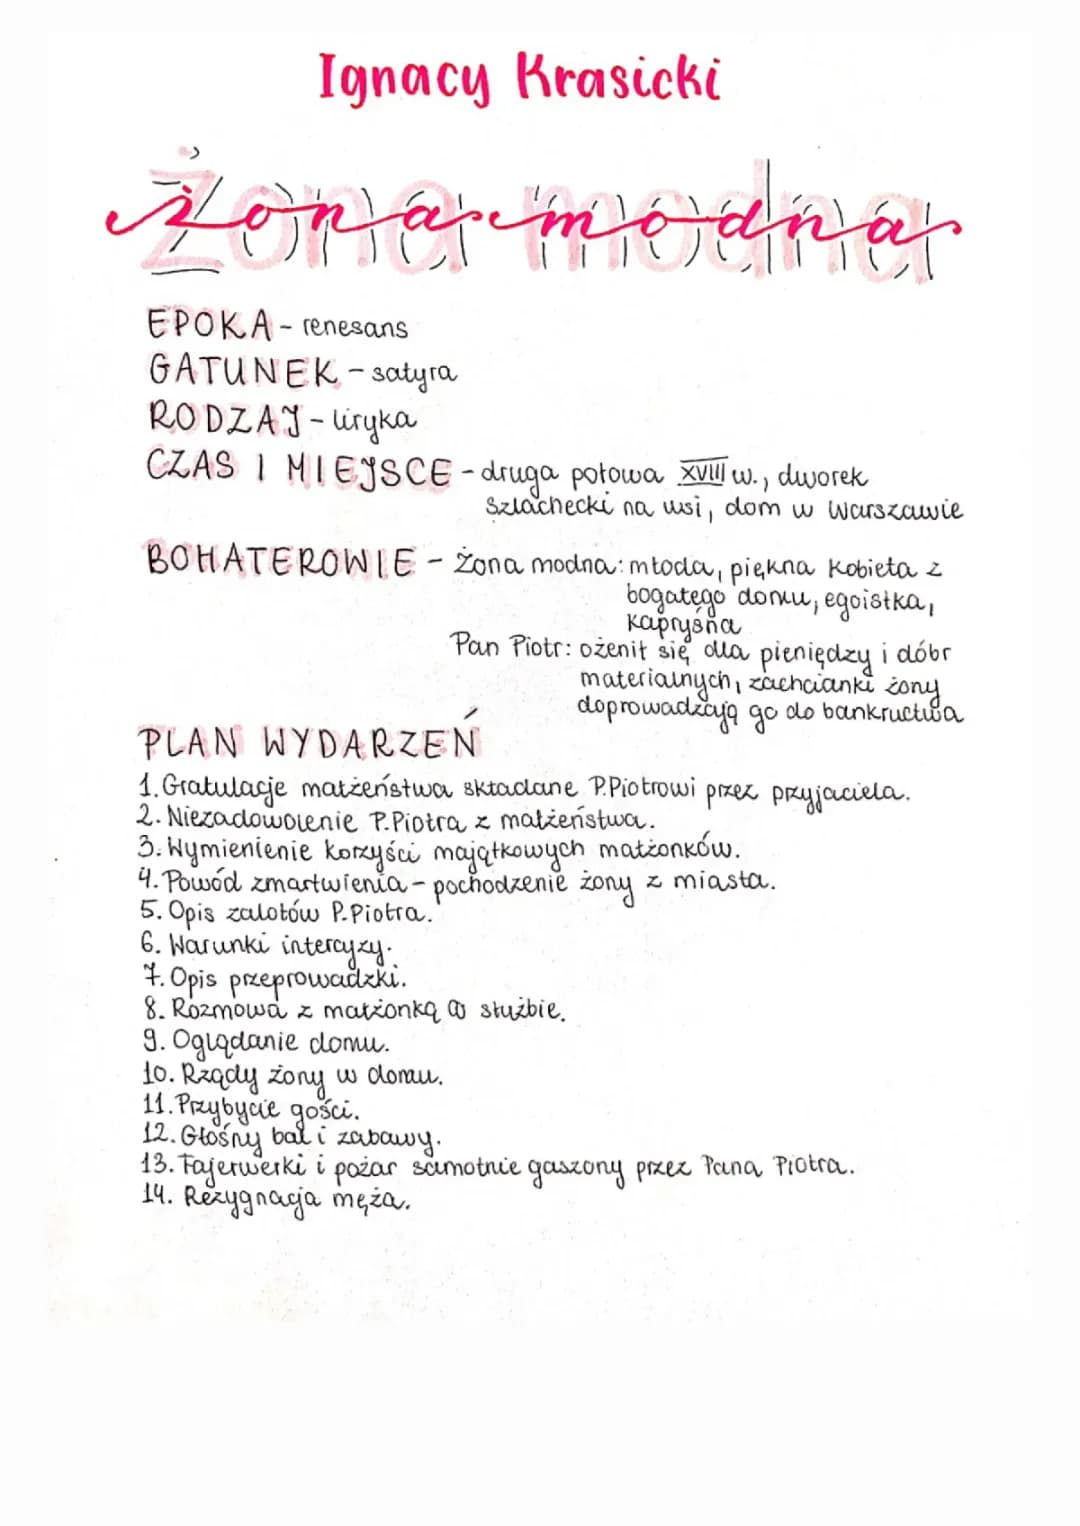 Ignacy Krasicki
żona modna
EPOKA - renesans
GATUNEK - satyra
RODZAJ - liryka
CZAS I MIEJSCE - druga połowa XVIII w., dworek
szlachecki na wsi, dom w Warszawie
BOHATEROWIE - Żona modna: młoda, piękna kobieta z
bogatego domu, egoistka,
kapryśna
Pan Piotr: ożenił się dla pieniędzy i dóbr
materialnych, zachcianki żony
doprowadzają go do bankructwa
PLAN WYDARZEŃ
1. Gratulacje małżeństwa składane P.Piotrowi przez przyjaciela.
2. Niezadowolenie P.Piotra z małżeństwa.
3. Wymienienie korzyści majątkowych małżonków.
4. Powód zmartwienia - pochodzenie żony z miasta.
5. Opis zalotów P.Piotra.
6. Warunki intercyzy.
7. Opis przeprowadzki.
8. Rozmowa z małżonką o służbie.
9. Oglądanie domu.
10. Rządy żony w domu.
11. Przybycie gości.
12. Głośny bal i zabawy.
13. Fajerwerki i pożar samotnie gaszony przez Pana Piotra.
14. Rezygnacja męża.